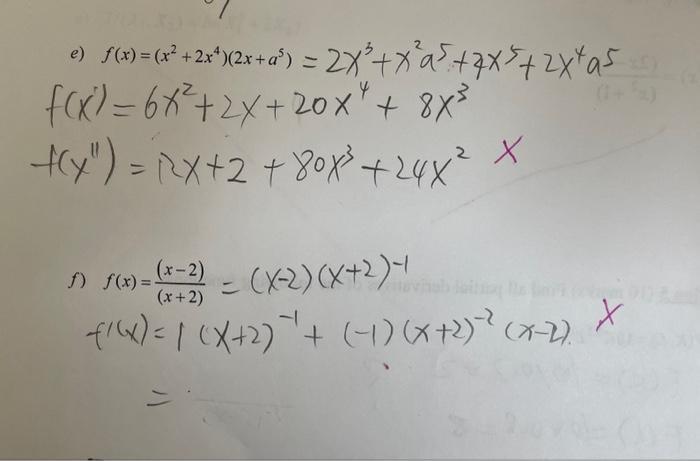 e) f(x) = (x² + 2x⁴)(2x + a⁵) = 2x³ + x²a⁵ + 4x⁵ + 2x⁴a⁵
f(x') = 6x² + 2x + 20x⁴ + 8x³
f(x'') = 12x + 2 + 80x³ + 24x² X
f) f(x) = (x-2)/(x+2) = (x-2)(x+2)⁻¹
f'(x) = 1(x+2)⁻¹ + (-1)(x+2)⁻²(x-2). X
=